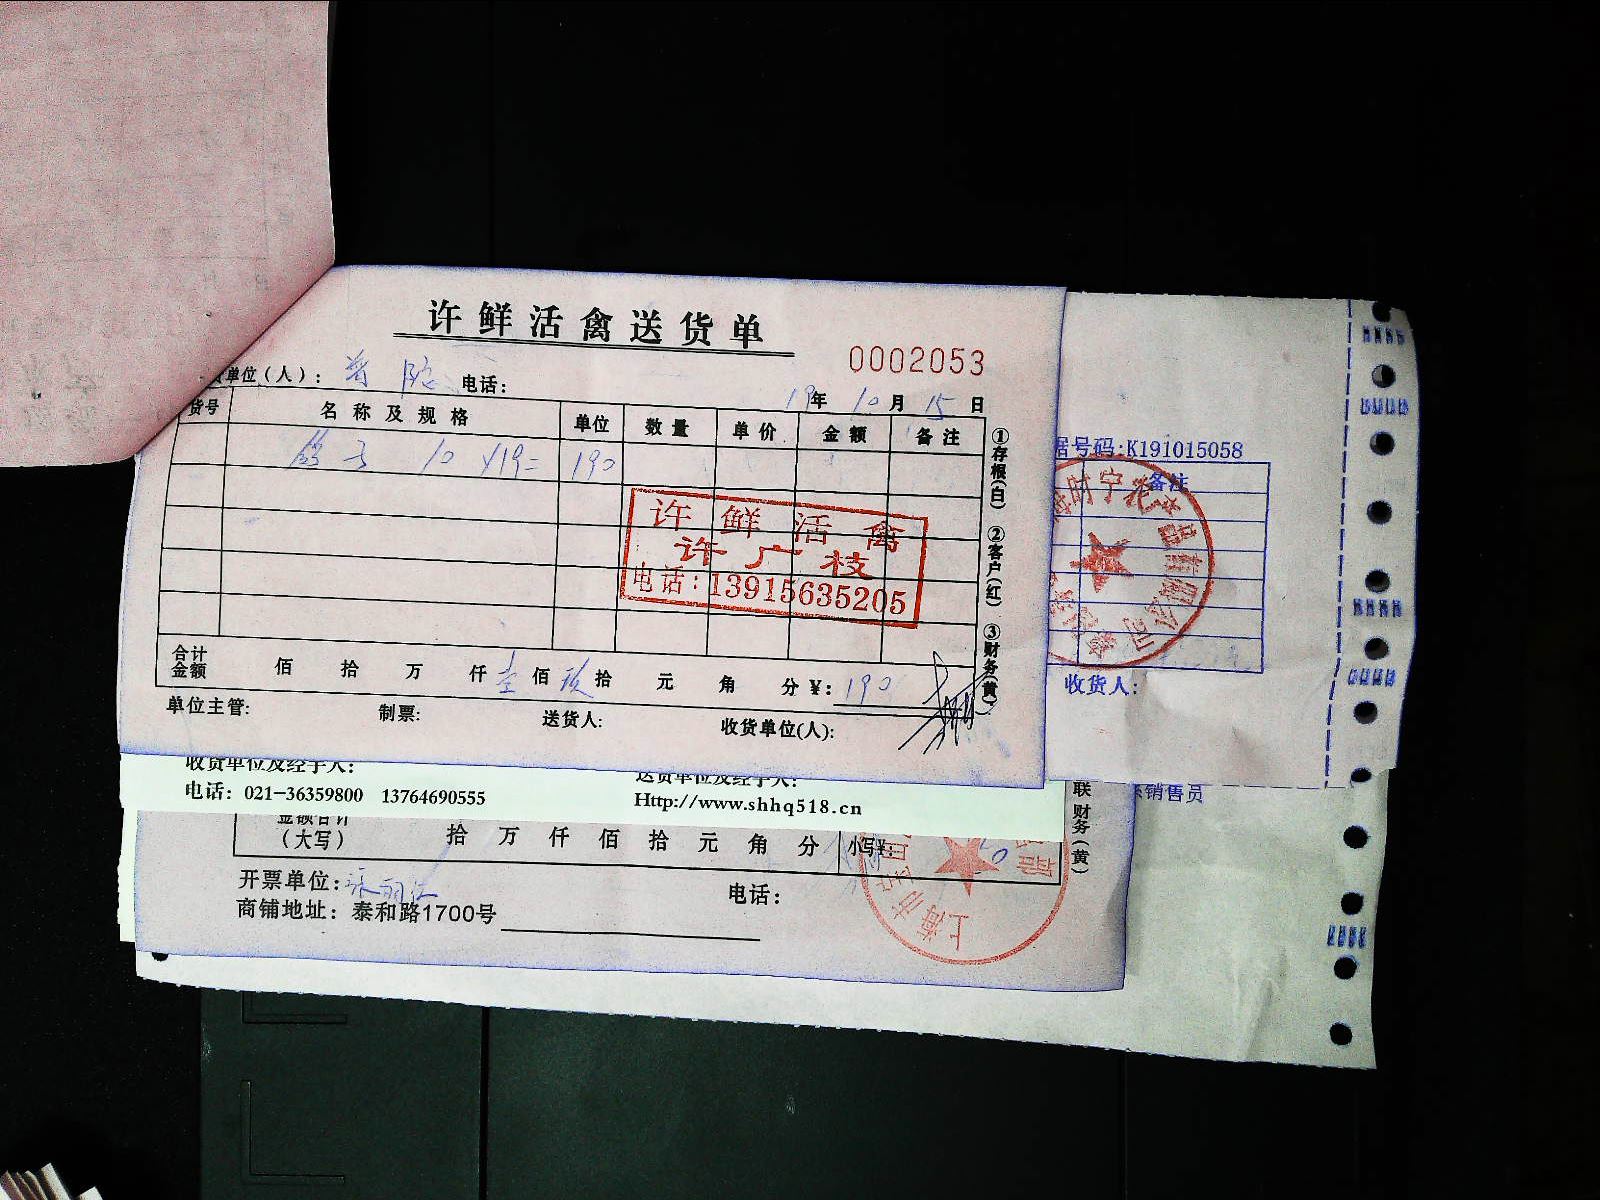 许鲜活禽送货单
0002053
单位（人）：普陀 电话：
19年 10月 15日
货号 名称及规格 单位 数量 单价 金额 备注
鸽子 10 ×19= 190
许鲜活禽
许广枝
电话：13915635205
合计金额 佰 拾 万 仟 壹佰 玖拾 元 角 分 ¥：190
单位主管: 制票: 送货人: 收货单位(人):
①存根(白) ②客户(红) ③财务(黄)
号码:K191015058
备注
收货人:
销售员
收货单位及经手人： 送货单位及经手人：
电话：021-36359800 13764690555 Http://www.shhq518.cn
金额合计（大写） 拾 万 仟 佰 拾 元 角 分 小写¥:
联 财务（黄）
开票单位： 电话：
商铺地址：泰和路1700号
上海市